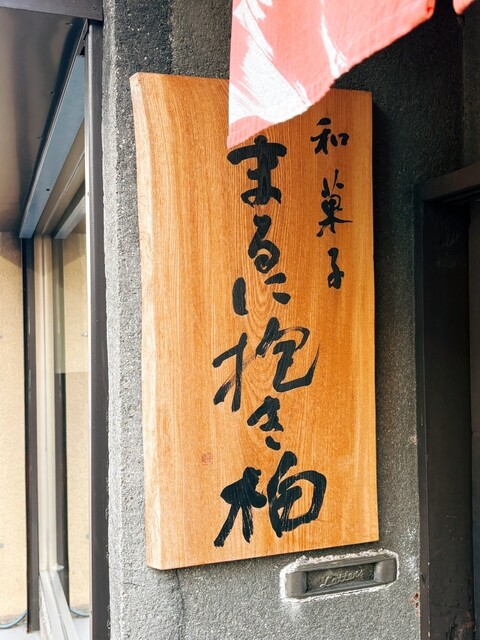 和菓子
まるに抱き柏
Letters